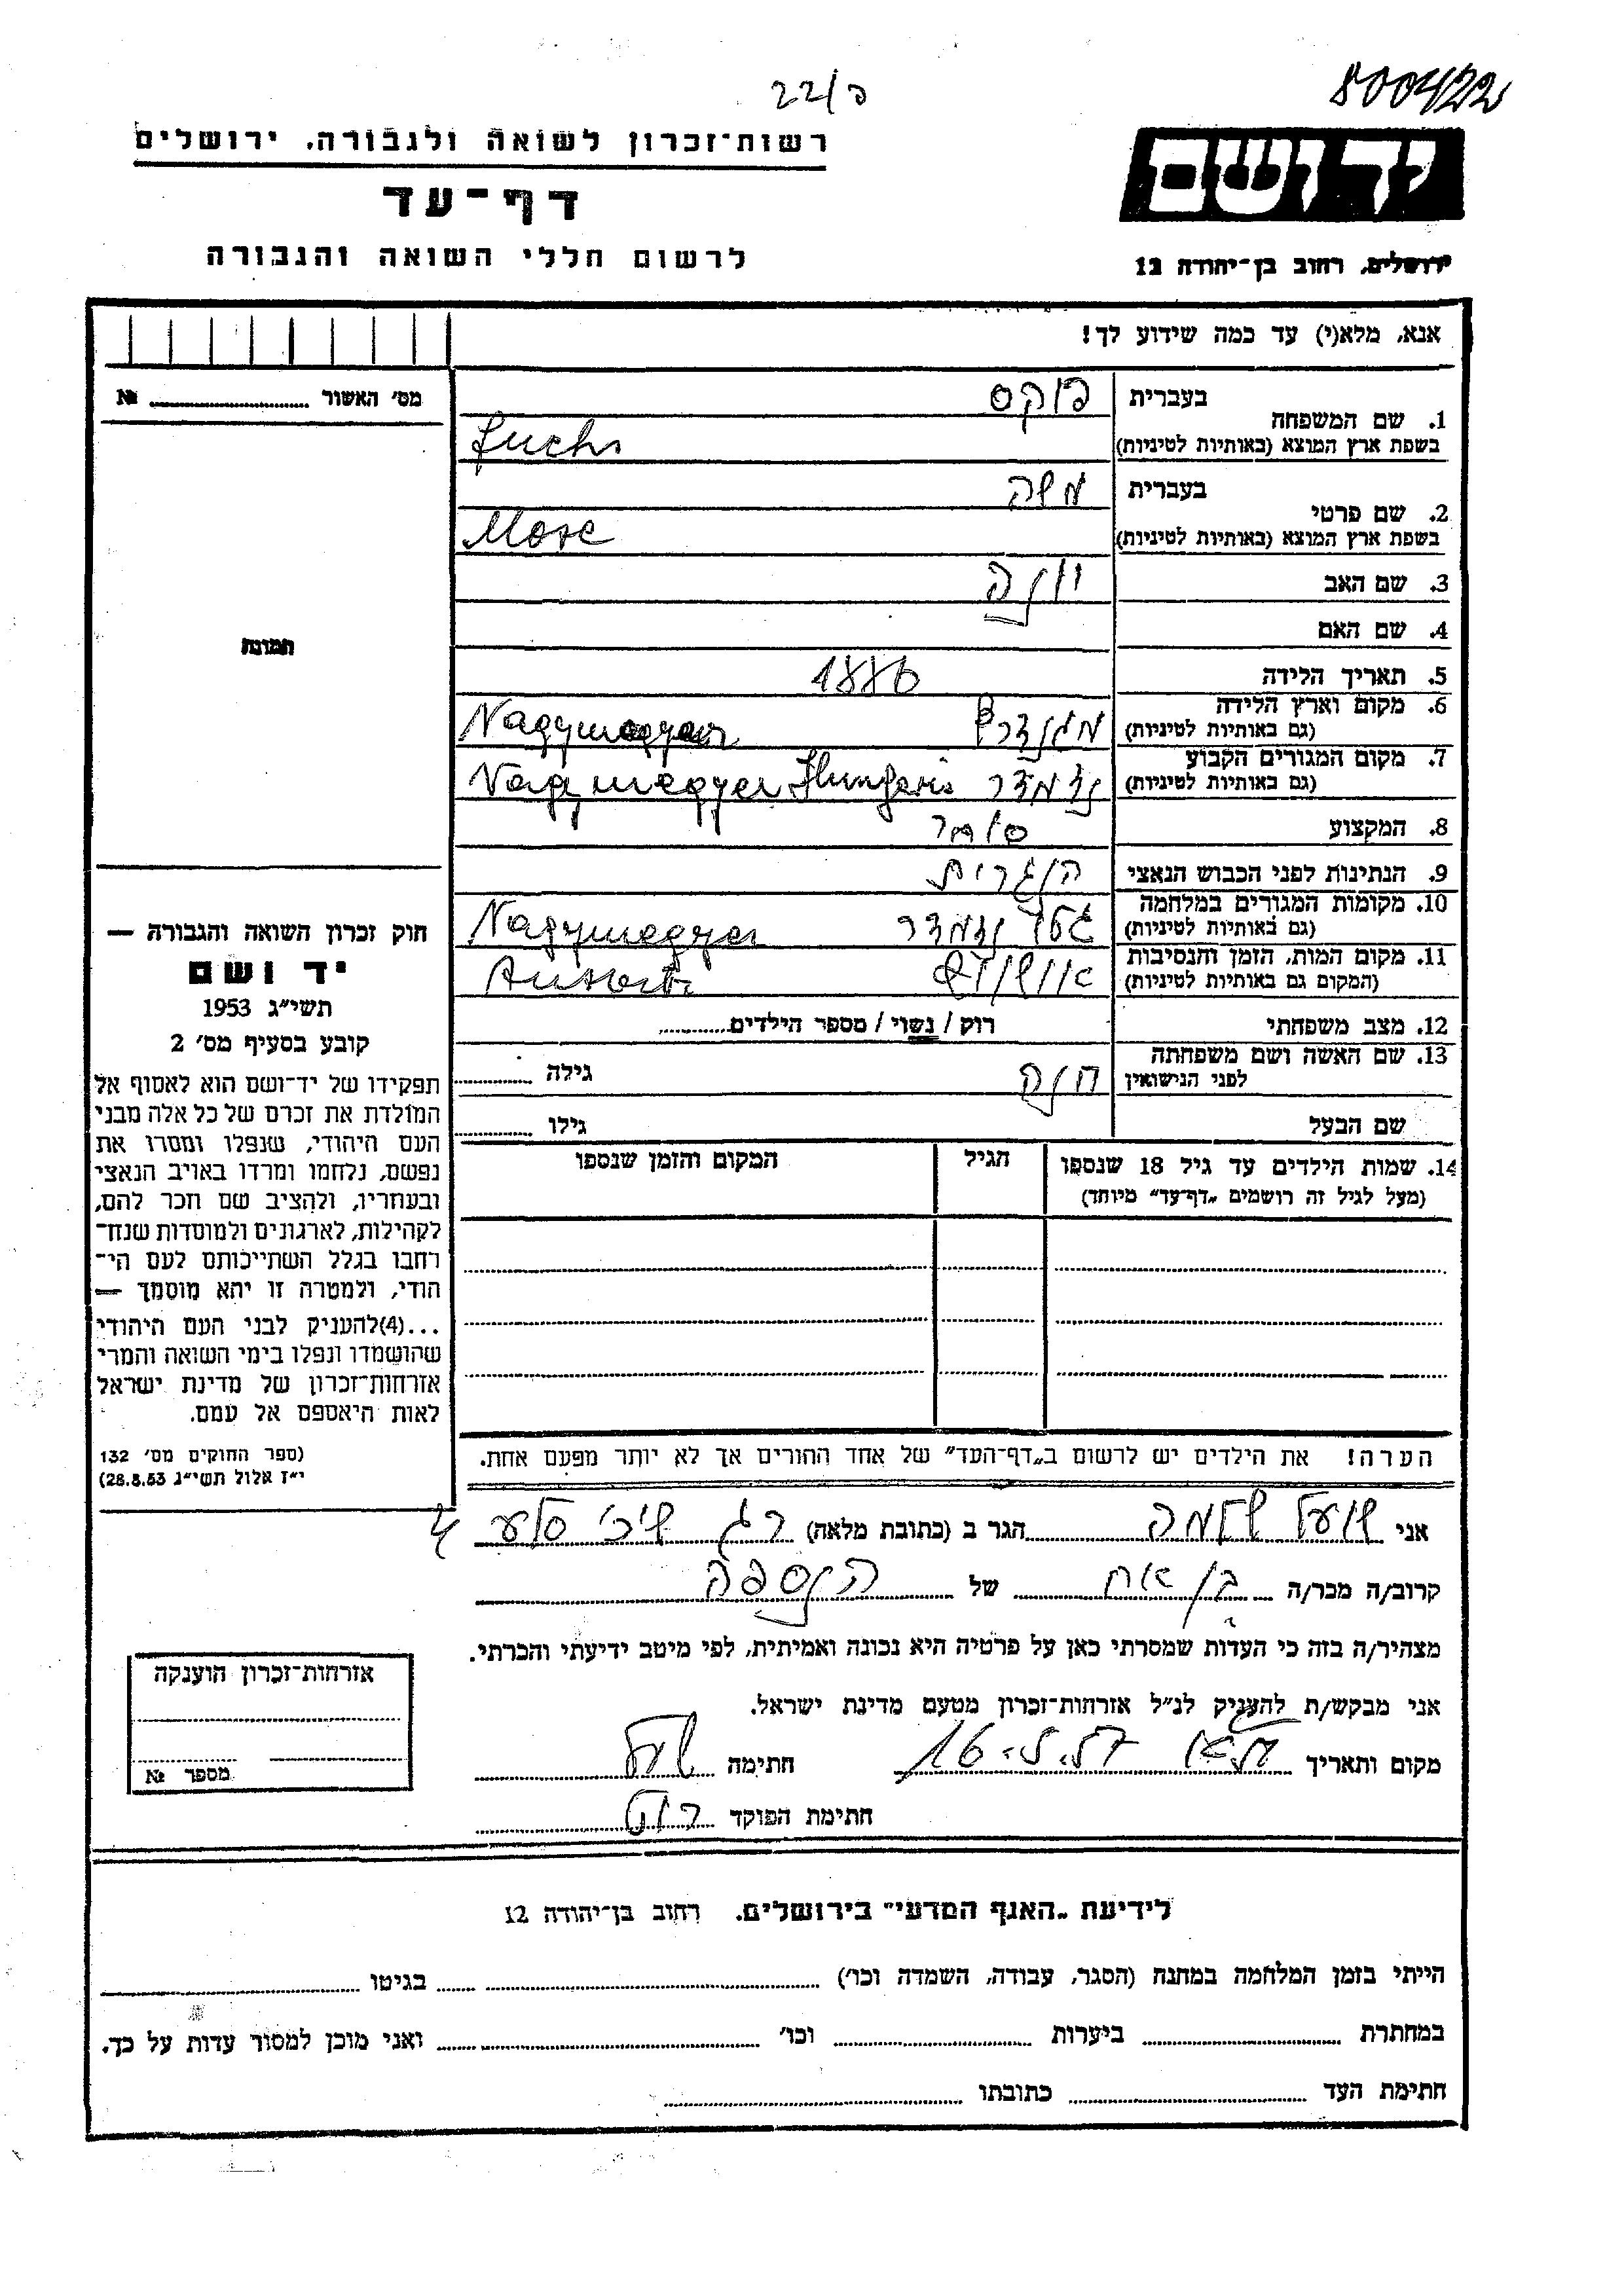 8004/22
22/פ
רשות־זכרון לשואה ולגבורה, ירושלים
דף־עד
לרשום חללי השואה והגבורה
יד ושם
ירושלים, רחוב בן־יהודה 12
אנא, מלא(י) עד כמה שידוע לך!
מס׳ האשור № 
בעברית פוקס
1. שם המשפחה
בשפת ארץ המוצא (באותיות לטיניות) Fuchs
בעברית משה
2. שם פרטי
בשפת ארץ המוצא (באותיות לטיניות) Mose
3. שם האב יונה
4. שם האם
5. תאריך הלידה 1886
6. מקום וארץ הלידה
(גם באותיות לטיניות) Nagymagyar
7. מקום המגורים הקבוע
(גם באותיות לטיניות) Nagymagyer Hungaria
8. המקצוע סוחר
9. הנתינות לפני הכבוש הנאצי הונגרית
10. מקומות המגורים במלחמה
(גם באותיות לטיניות) Nagymegyer
11. מקום המות, הזמן והנסיבות
(המקום גם באותיות לטיניות) אושויץ
12. מצב משפחתי רוק / נשוי / מספר הילדים
13. שם האשה ושם משפחתה
לפני הנישואין חנה גילה
שם הבעל גילו
14. שמות הילדים עד גיל 18 שנספו הגיל המקום והזמן שנספו
(מעל לגיל זה רושמים „דף־עד״ מיוחד)
הערה! את הילדים יש לרשום ב„דף־העד״ של אחד ההורים אך לא יותר מפעם אחת.
תמונה
חוק זכרון השואה והגבורה —
יד ושם
תשי״ג 1953
קובע בסעיף מס׳ 2
תפקידו של יד־ושם הוא לאסוף אל
המולדת את זכרם של כל אלה מבני
העם היהודי, שנפלו ומסרו את
נפשם, נלחמו ומרדו באויב הנאצי
ובעוזריו, ולהציב שם וזכר להם,
לקהילות, לארגונים ולמוסדות שנח־
רבו בגלל השתייכותם לעם הי־
הודי, ולמטרה זו יהא מוסמך —
...(4)להעניק לבני העם היהודי
שהושמדו ונפלו בימי השואה והמרי
אזרחות־זכרון של מדינת ישראל
לאות היאספם אל עמם.
(ספר החוקים מס׳ 132
י״ז אלול תשי״ג 28.8.53)
אני שועל שלמה הגר ב (כתובת מלאה) רג שיכ׳ סלע 4
קרוב/ה מכר/ה בן אח של הנספה
מצהיר/ה בזה כי העדות שמסרתי כאן על פרטיה היא נכונה ואמיתית, לפי מיטב ידיעתי והכרתי.
אני מבקש/ת להעניק לנ״ל אזרחות־זכרון מטעם מדינת ישראל.
מקום ותאריך חתימה שועל
חתימת הפוקד
אזרחות־זכרון הוענקה
מספר №
לידיעת „האגף המדעי״ בירושלים, רחוב בן־יהודה 12
הייתי בזמן המלחמה במחנה (הסגר, עבודה, השמדה וכו׳) בגיטו
במחתרת ביערות וכו׳ ואני מוכן למסור עדות על כך.
חתימת העד כתובתו